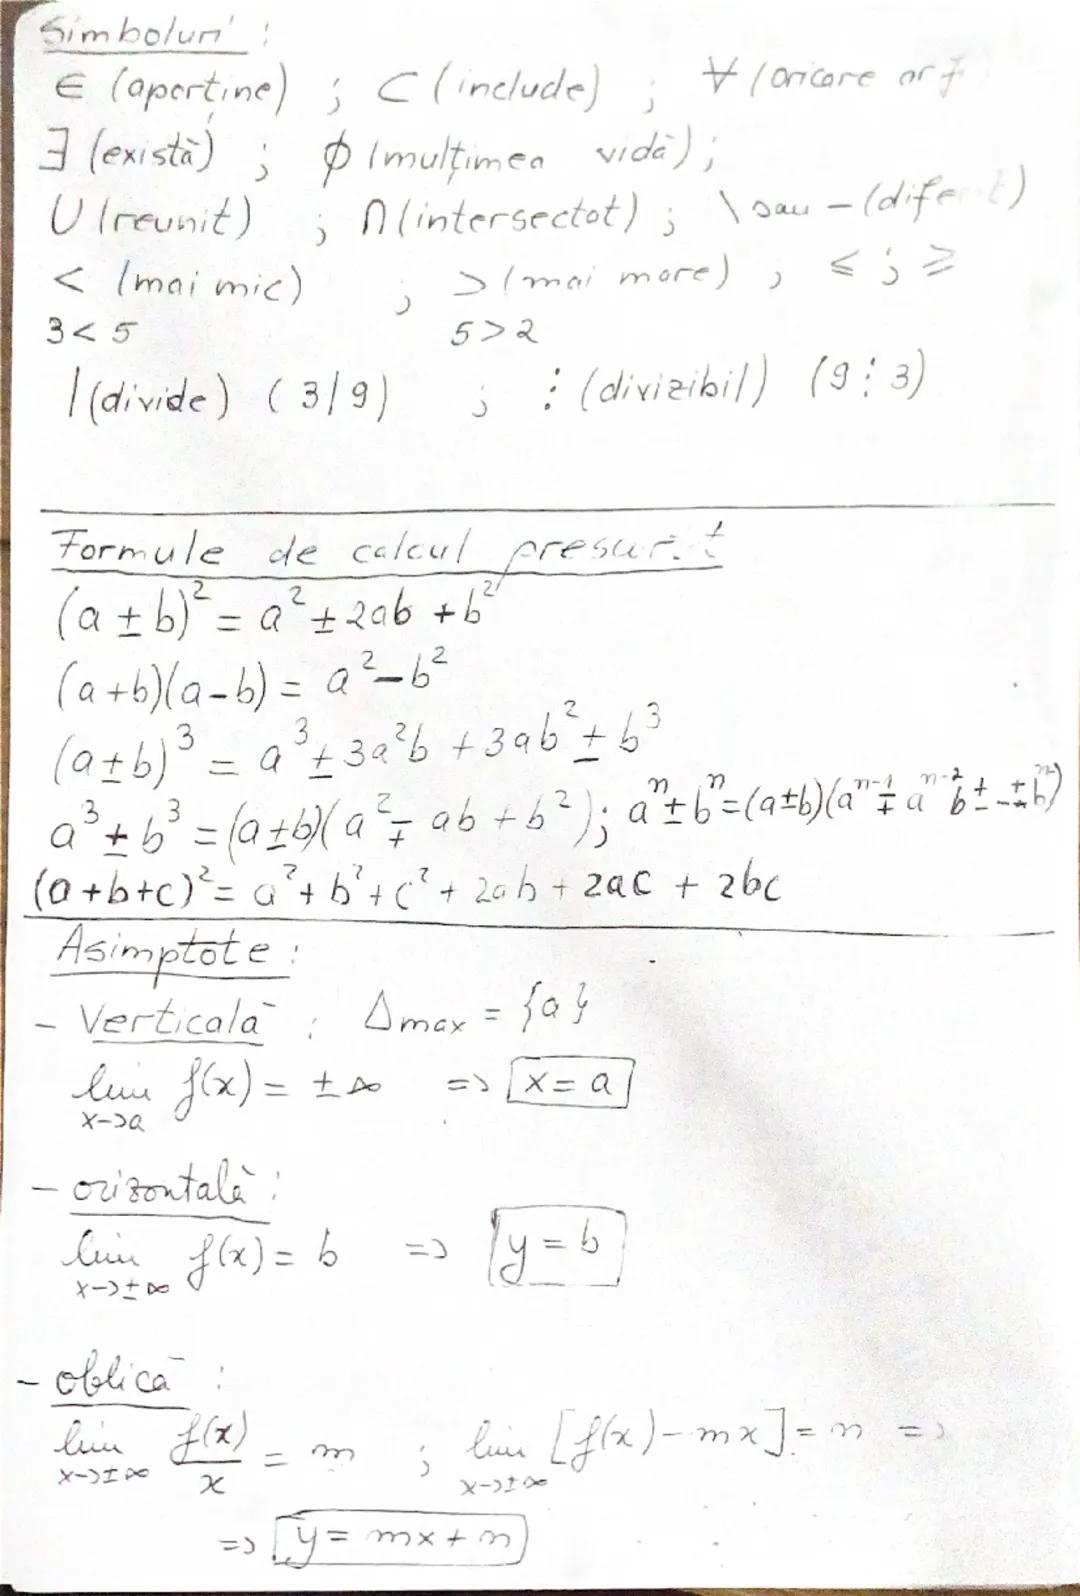 Simboluri :
∈ (aparține) ; ⊂ (include) ; ∀ (oricare ar fi
∃ (există) ; ∅ (mulțimea vidă) ;
∪ (reunit) ; ∩ (intersectat) ; \ sau – (diferit)
< (mai mic) ; > (mai mare) ; ≤ ; ≥
3 < 5 5 > 2
| (divide) ( 3 | 9 ) ; ⋮ (divizibil) (9 ⋮ 3)
Formule de calcul prescurt
(a ± b)² = a² ± 2ab + b²
(a+b)(a-b) = a² - b²
(a±b)³ = a³ ± 3a²b + 3ab² ± b³
a³ ± b³ = (a±b)(a² ∓ ab + b²); aⁿ ± bⁿ = (a±b)(aⁿ⁻¹ ∓ aⁿ⁻²b ± ... ± b
(a+b+c)² = a² + b² + c² + 2ab + 2ac + 2bc
Asimptote :
- Verticală : Δmax = {a}
lim f(x) = ±∞ => x = a
x->a
- orizontală :
lim f(x) = b => y = b
x->±∞
- oblică :
lim f(x)/x = m ; lim [f(x) - mx] = n =>
x->±∞ x->±∞
=> y = mx + n